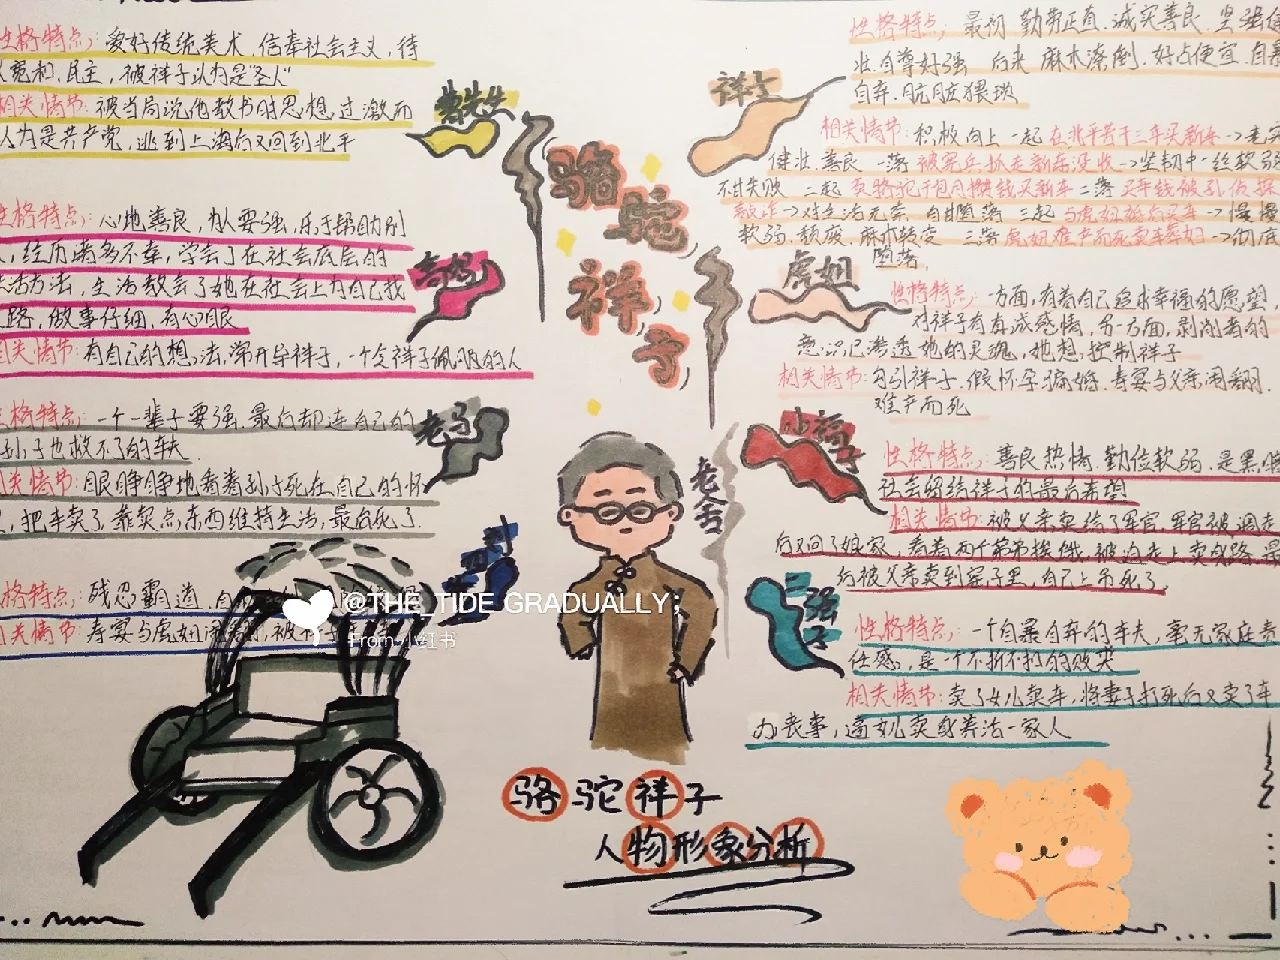 骆驼祥子
曹先生
性格特点：爱好传统美术，信奉社会主义，待
人宽和，民主，被祥子认为是"圣人"
相关情节：被当局说他教书时思想过激而
认为是共产党，逃到上海后又回到北平
高妈
性格特点：心地善良，为人要强，乐于帮助别
，经历诸多不幸，学会了在社会底层的
生活方法，生活教会了她在社会上为自己找
路，做事仔细，有心眼
相关情节：有自己的想法，常开导祥子，一个令祥子佩服的人
老马
性格特点：一个一辈子要强，最后却连自己的
孙子也救不了的车夫
相关情节：眼睁睁地看着孙子死在自己的怀
，把车卖了，靠卖点东西维持生活，最后死了.
格特点：残忍霸道，自
相关情节：寿宴与虎妞闹翻，被
祥子
性格特点：最初 勤劳正直.诚实善良.坚强
壮.自尊好强 后来 麻木潦倒.好占便宜.自暴
自弃.肮脏猥琐
相关情节：积极向上 一起 在北平苦干三年买新车→老实
健壮.善良 一落 被宪兵抓走新车没收→坚韧中一丝软弱
不甘失败 二起 卖骆驼 买新车 二落 买车钱被孔侦探
敲诈→对生活无奈 自甘堕落 三起 与虎妞 后买车→慢慢
软弱.颓废.麻木转变 三落 虎妞难产而死卖车葬妇→彻底
堕落
虎妞
性格特点：一方面，有着自己追求幸福的愿望
对祥子有真诚感情，另一方面，剥削者的
意识已渗透她的灵魂，她想控制祥子
相关情节：勾引祥子.假怀孕骗婚.寿宴与父亲闹翻.
难产而死
小福子
性格特点：善良热情.勤俭软弱.是黑暗
社会留给祥子的最后希望
相关情节：被父亲卖给了军官，军官被调走
后又回了娘家，看着两个弟弟挨饿，被迫走上卖 路.最
后被父亲卖到窑子里，自己上吊死了.
二强子
性格特点：一个自暴自弃的车夫 毫无家庭责
任感，是一个不折不扣的败类
相关情节：卖了女儿卖车，将妻子打死后又卖了车
办丧事，逼女儿卖身养活一家人
老舍
@THE_TIDE GRADUALLY；
From 小红书
骆驼祥子
人物形象分析